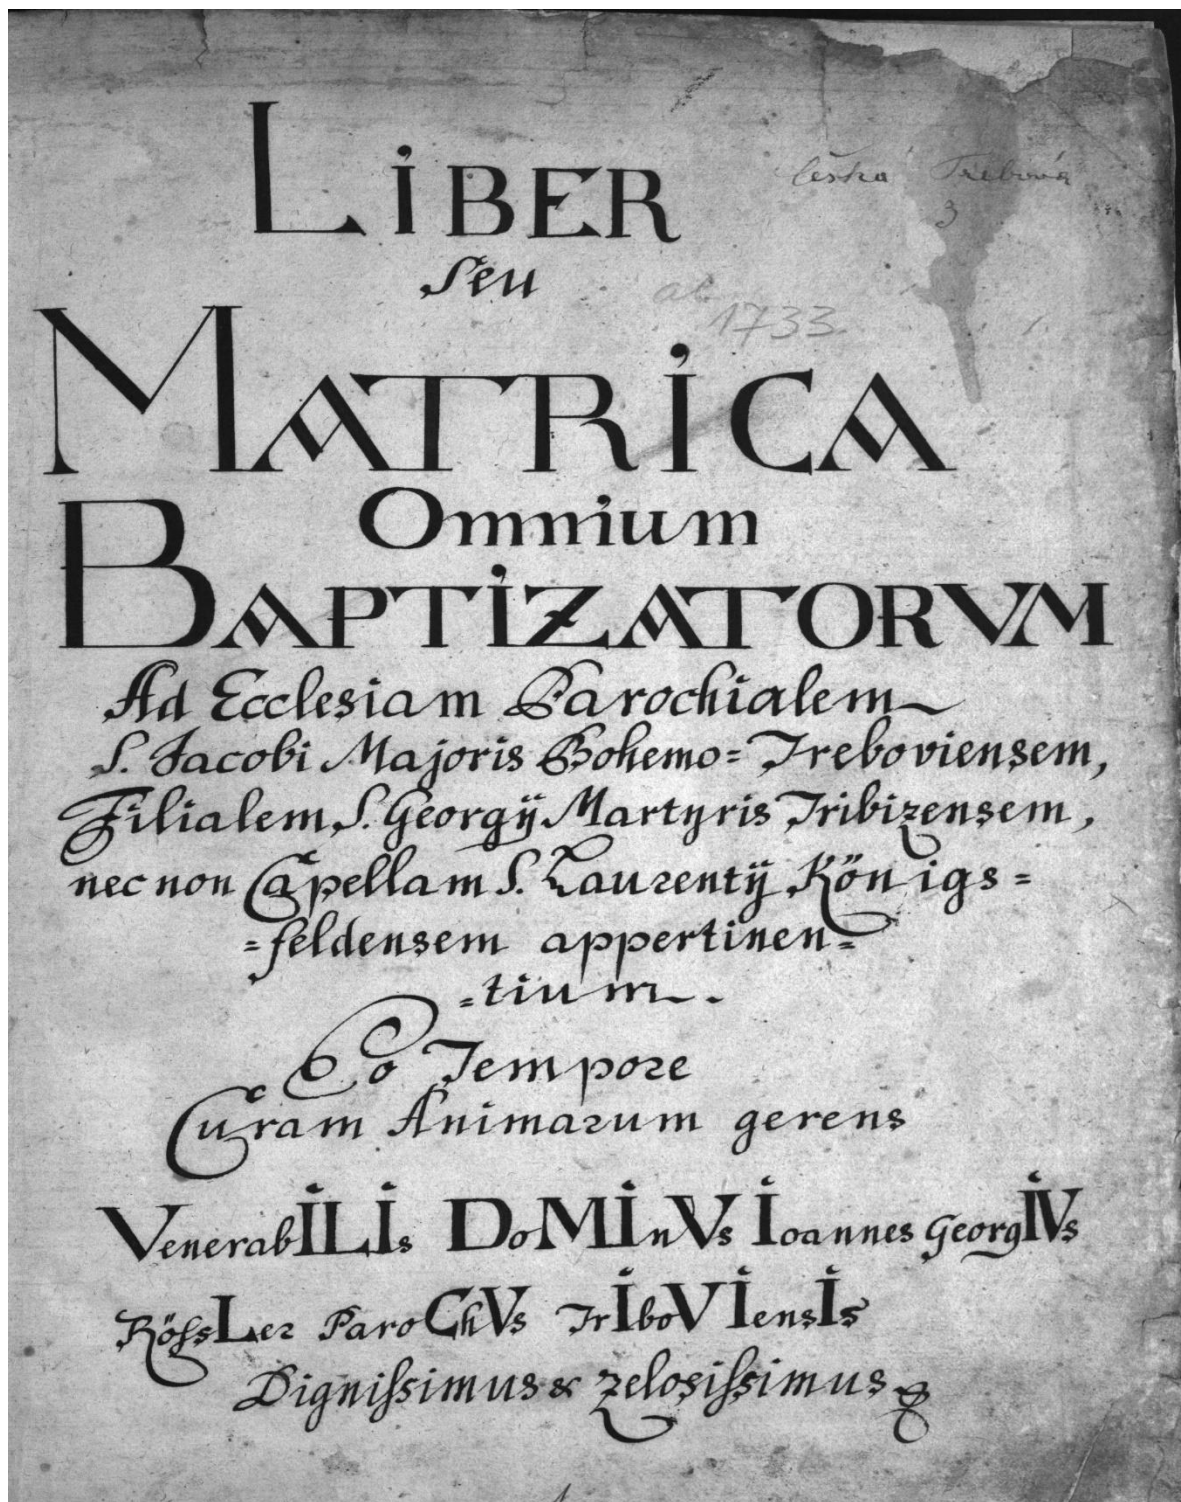 LiBER
Česká Třebová
3
seu
ab
1733
MATRiCA
Omnium
BAPTiZATORVM
Ad Ecclesiam Parochialem
S. Jacobi Majoris Bohemo= Treboviensem,
Filialem S. Georgij Martyris Tribizensem,
nec non Capellam S. Laurentij Königs=
=feldensem appertinen=
=tium.
Eo Tempore
Curam Animarum gerens
VenerabILIs DoMInVs Ioannes GeorgIVs
RößLer ParoChVs TrIboVIensIs
Dignissimus & zelosissimus